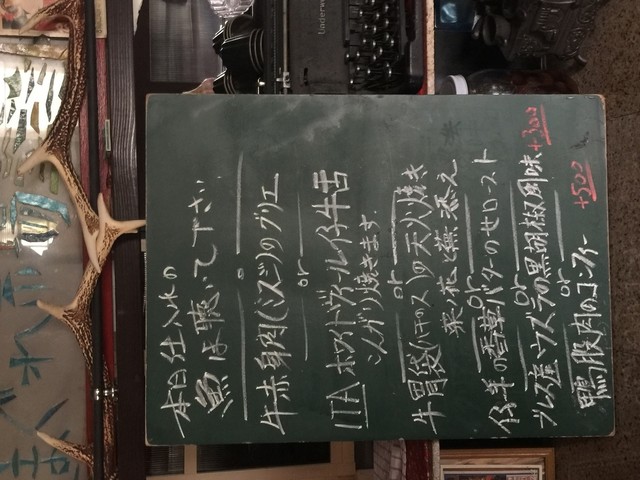 本日仕入れの
魚は聴いて下さい
牛赤身肉(イスゴ)のグリエ
or
ITA ホワイトヴィール仔牛舌
こんがり焼きます
or
牛胃袋(ハチのス)の天火焼き
菜の花と蕪添え
or
仔羊の香草バターのせロースト
or
ブレス産ウズラの黒胡椒風味 +300
or
鴨腿肉のコンフィー +500
Underwood